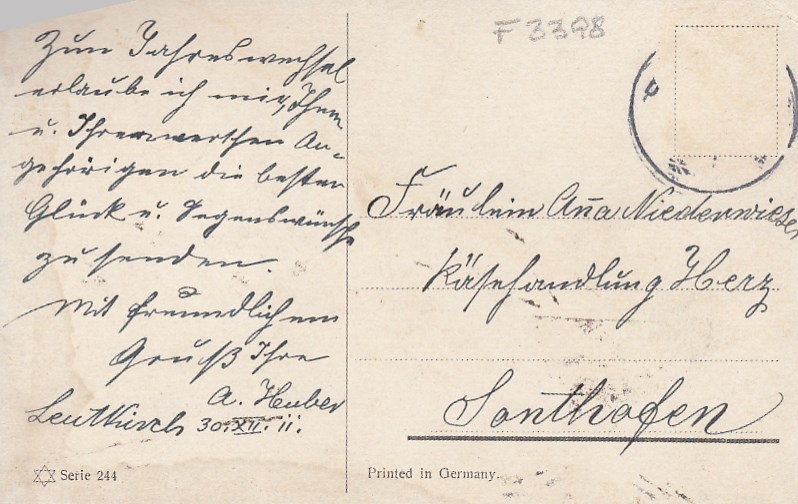 Zum Jahreswechsel
erlaube ich mir, Ihnen
u. Ihren werthen An=
gehörigen die besten
Glück u. Segenswünsche
zu senden.
Mit freundlichem
Gruß Ihre
A. Huber
Leutkirch 30.XII.11.
Serie 244
F 3398
Fräulein Anna Niederwieser
Käsehandlung Herz
Sonthofen
Printed in Germany.